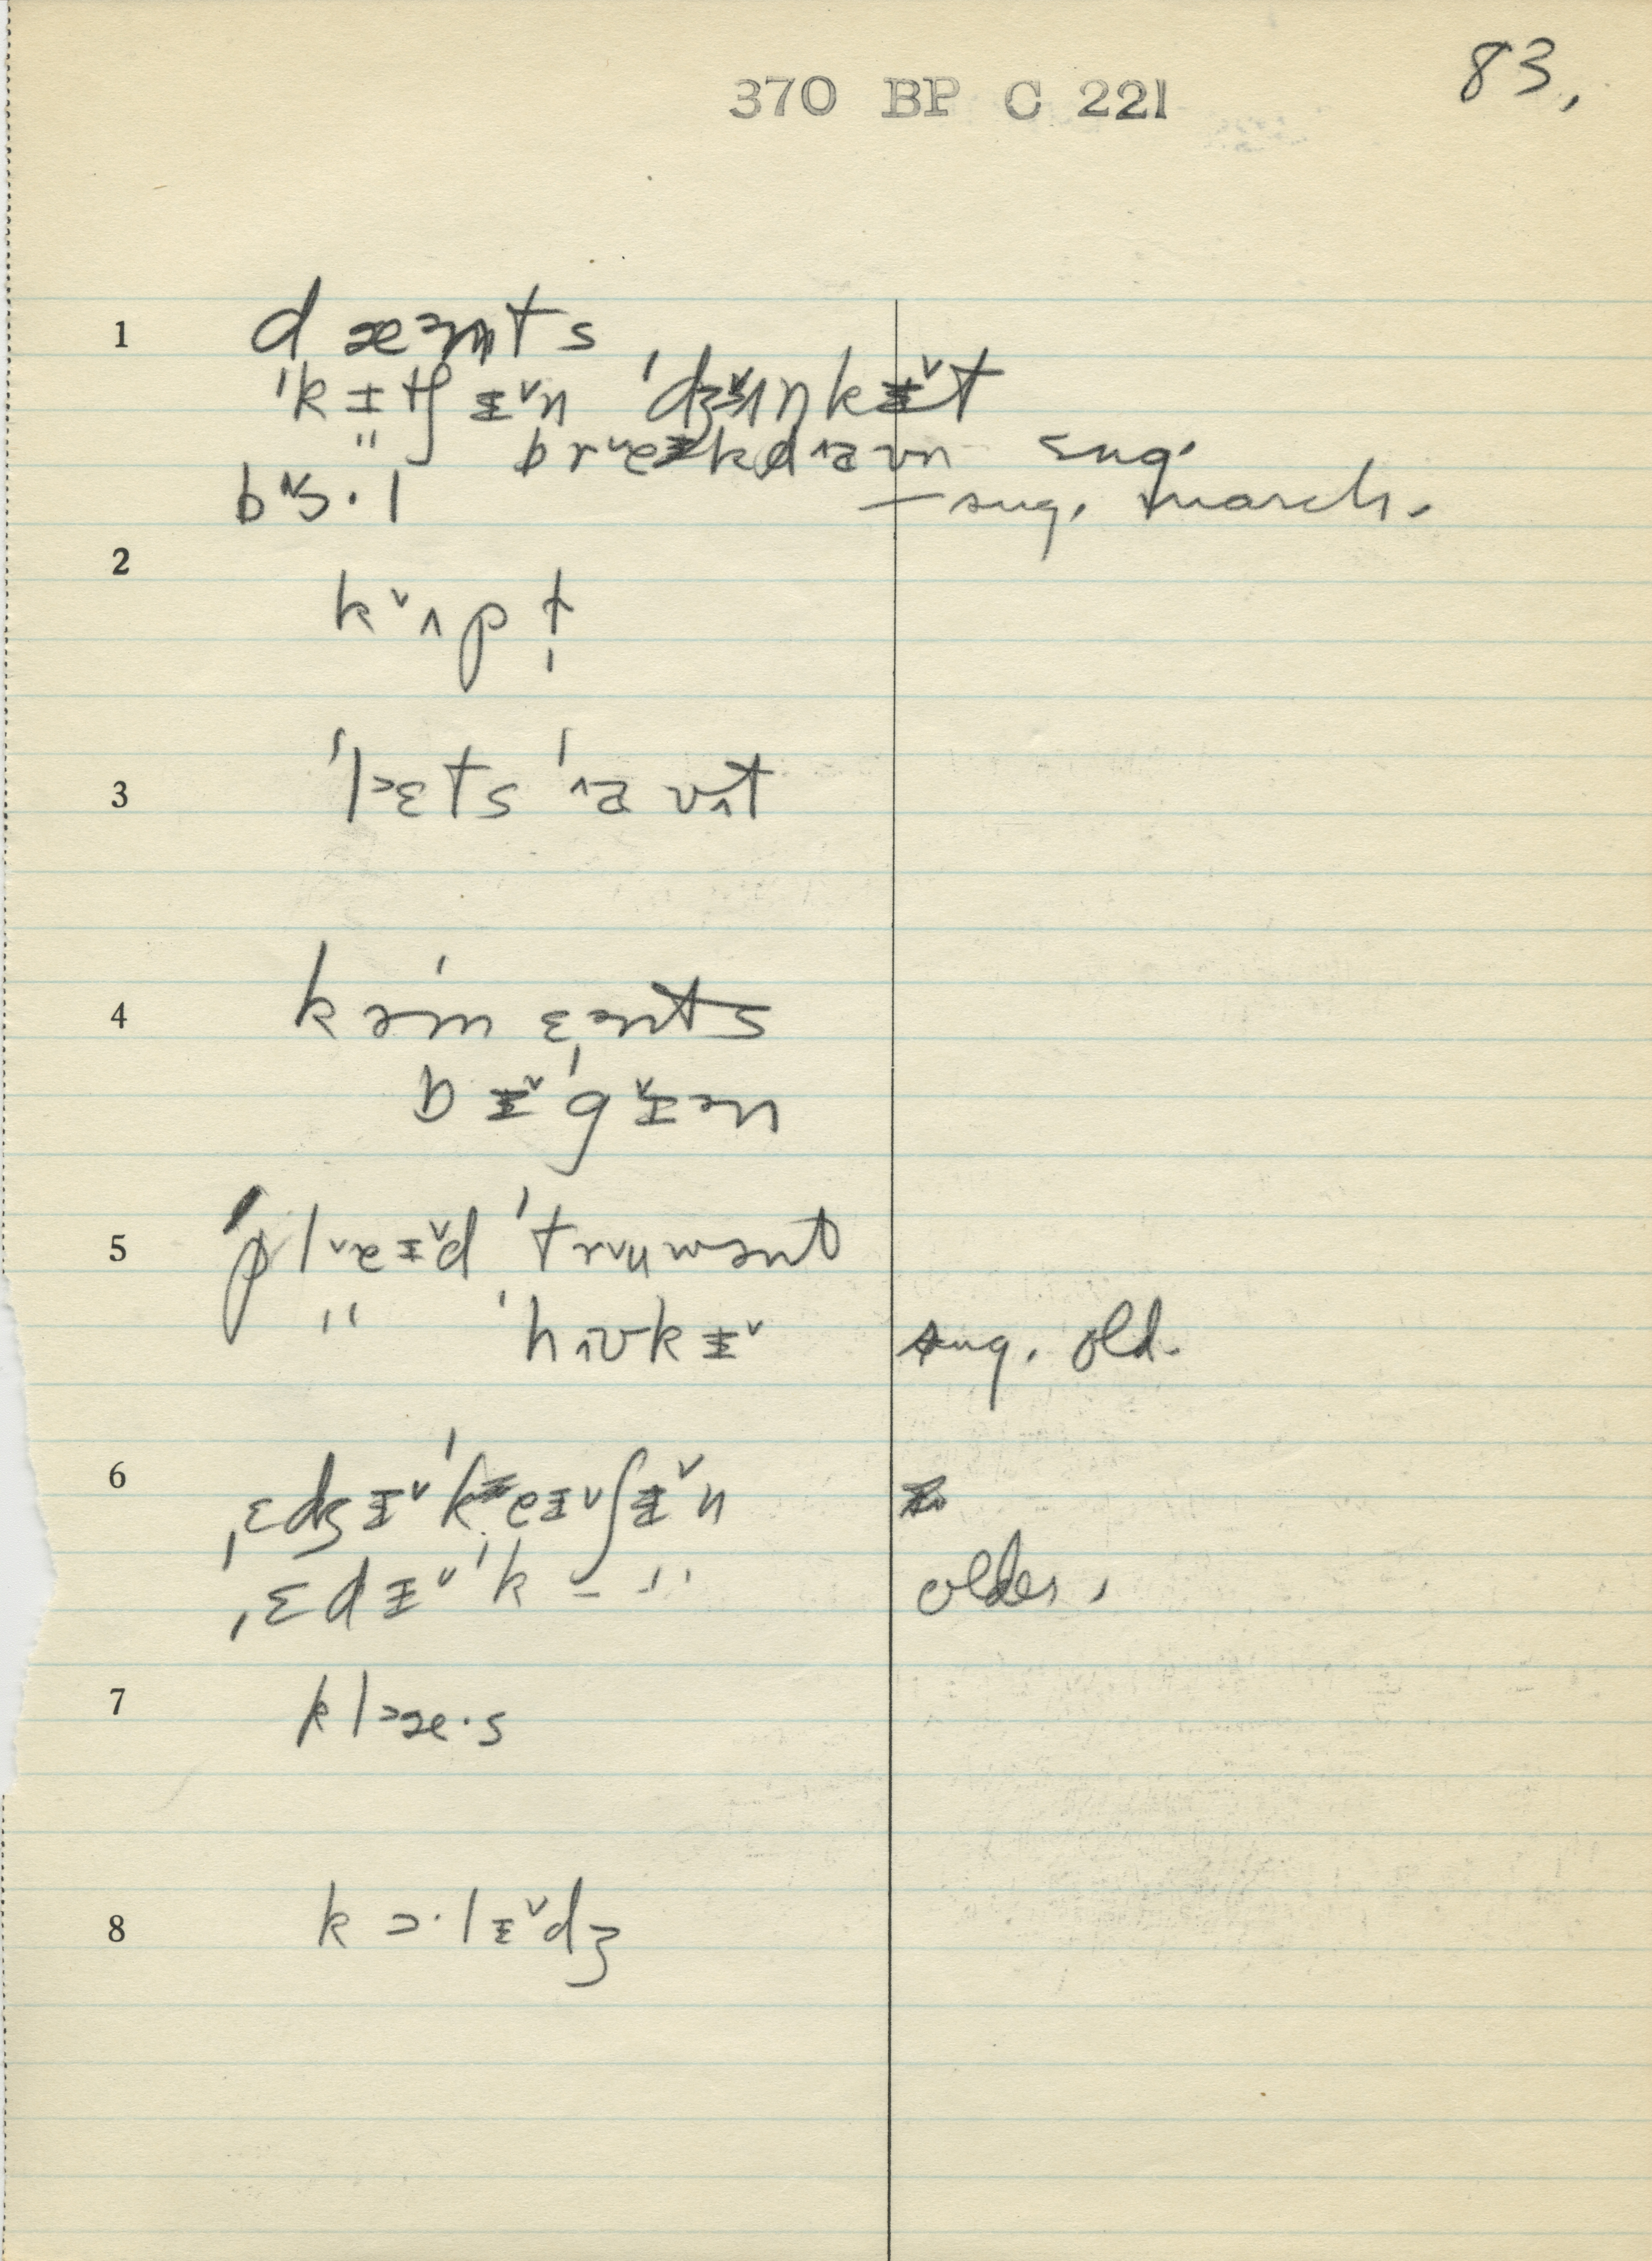 83.
370 BP C 221
1 dæᵊnts
ˈkɪtʃɪ˅n ˈdʒ˅ʌŋkɪ˅t
" br˅eɪkd˄aʊn sug.
bɔ·l — sug. march.
2
k˅ʌpt̩
3 ˈlᵊɛts ˈ˄aʊ˄t
4 kəˈmɛᵊnts
bɪ˅ˈg˅ɪᵊn
5 ˈpl˅eɪ˅d ˈtr˅uwənt
" ˈh˄ʊkɪ˅ sug. old.
6 ˌɛdʒɪ˅ˈkeɪ˅ʃɪ˅n
ˌɛdɪ˅ˈk – " older,
7 klᵊæ·s
8 kɔ·lɪ˅dʒ